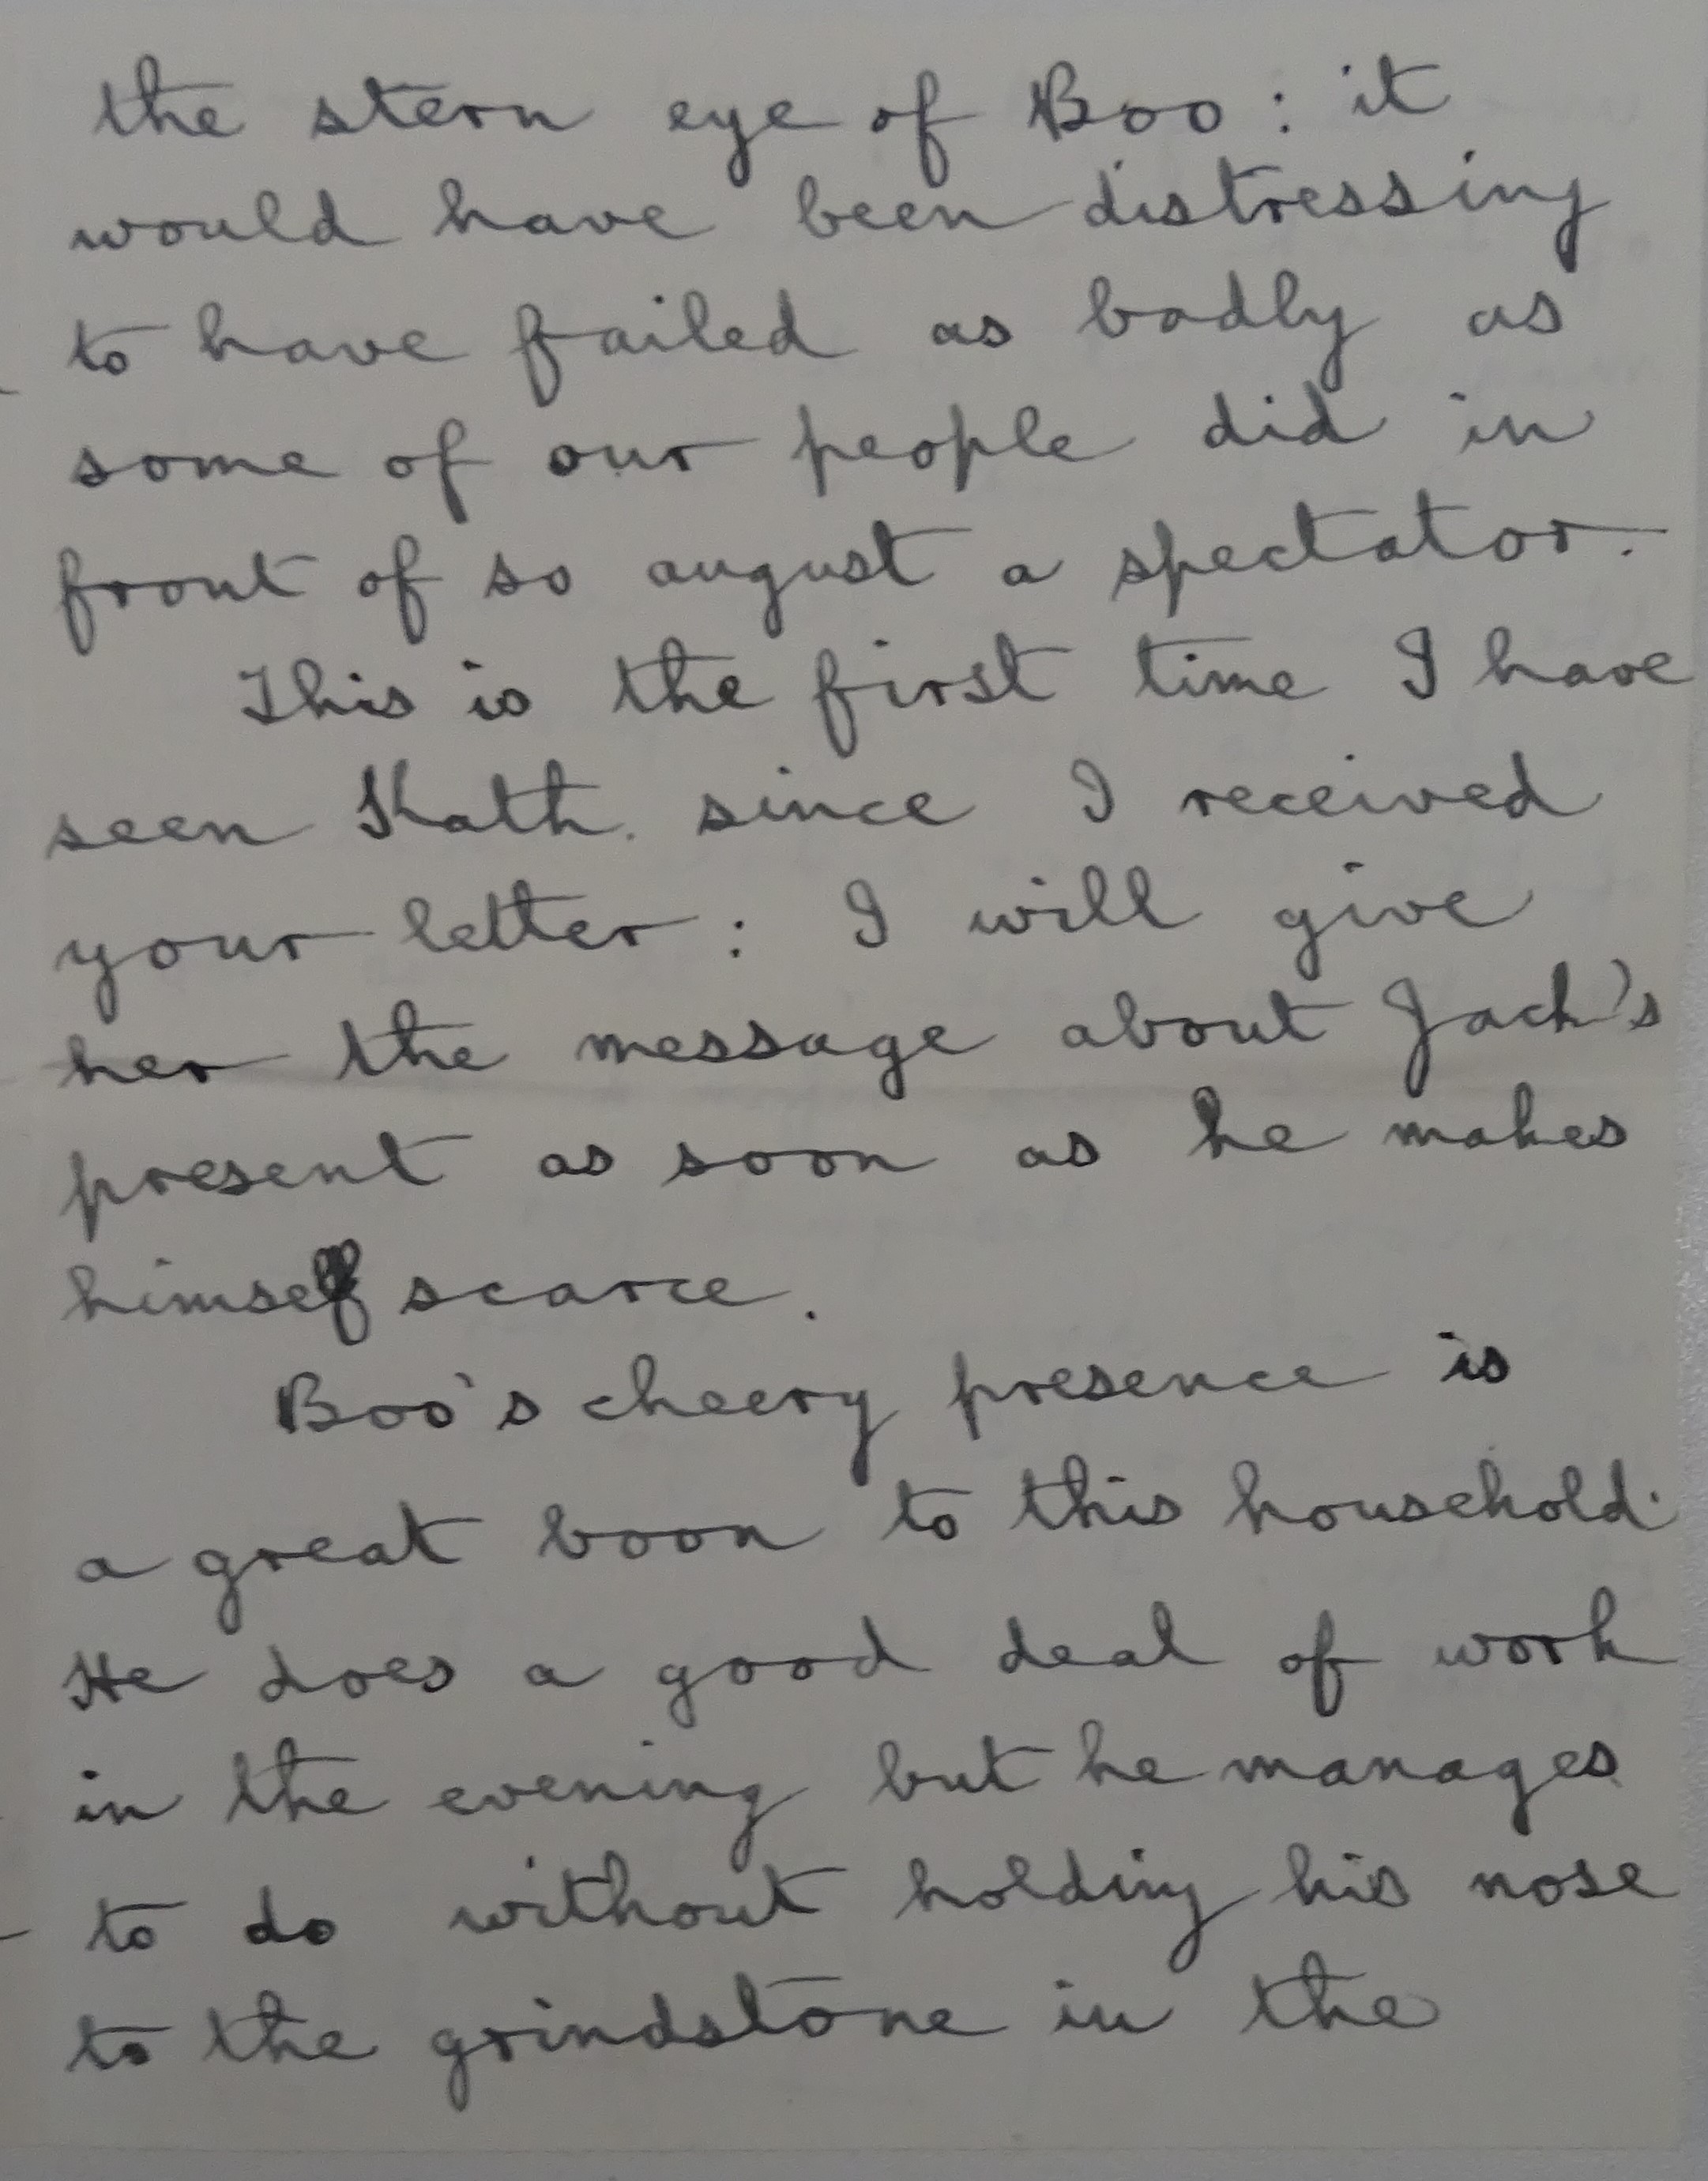 the stern eye of Boo: it
would have been distressing
to have failed as badly as
some of our people did in
front of so august a spectator.
This is the first time I have
seen Kath. since I received
your letter: I will give
her the message about Jack's
present as soon as he makes
himself scarce.
Boo's cheery presence is
a great boon to this household.
He does a good deal of work
in the evening but he manages
to do without holding his nose
to the grindstone in the